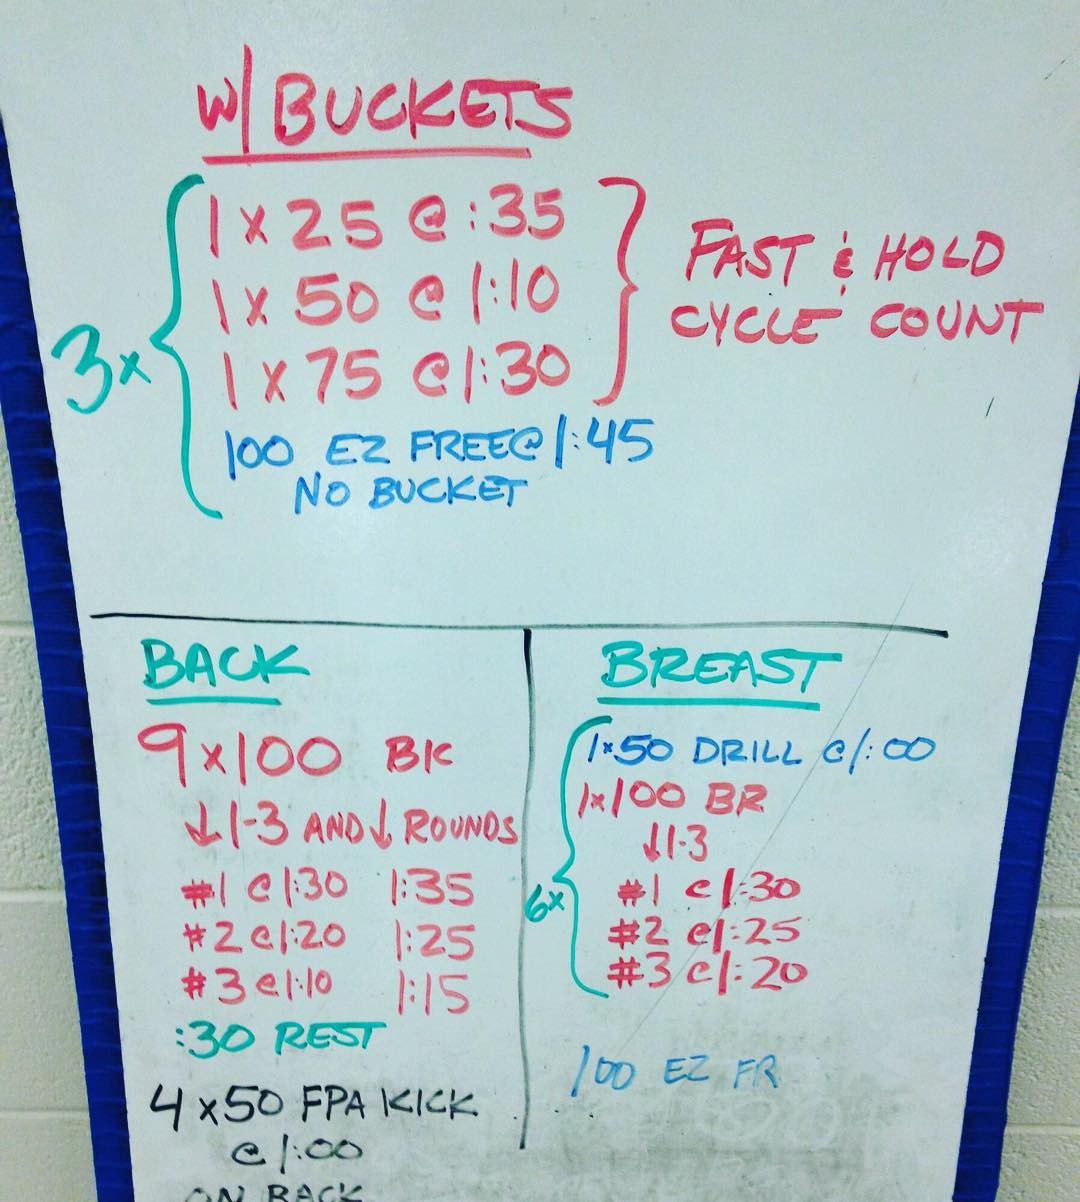 W/ BUCKETS
1 x 25 @ :35
1 x 50 @ 1:10
1 x 75 @ 1:30
3x
FAST & HOLD
CYCLE COUNT
100 EZ FREE @ 1:45
NO BUCKET
BACK
9 x 100 BK
↓ 1-3 AND ↓ ROUNDS
#1 @ 1:30 1:35
#2 @ 1:20 1:25
#3 @ 1:10 1:15
:30 REST
4 x 50 FPA KICK
@ 1:00
ON BACK
BREAST
1x50 DRILL @ 1:00
1x100 BR
↓ 1-3
6x
#1 @ 1:30
#2 @ 1:25
#3 @ 1:20
100 EZ FR